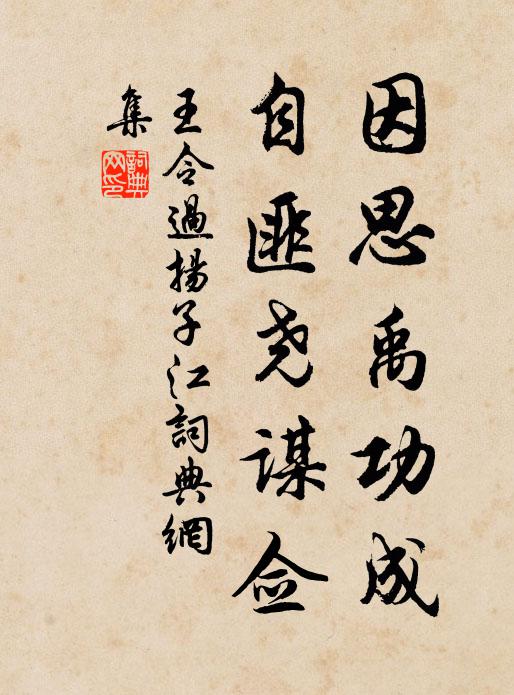 因思禹功成
自匪尧谋佥
王令過揚子江詞典網
集
詞典
网印